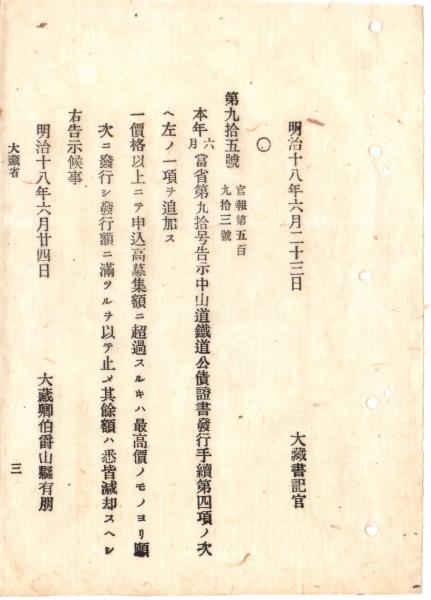 明治十八年六月二十三日
大藏書記官
〇
第九拾五號 官報第五百九拾三號
本年六月當省第九拾号告示中山道鐵道公債證書發行手續第四項ノ次
ヘ左ノ一項ヲ追加ス
一價格以上ニテ申込高募集額ニ超過スルキハ最高價ノモノヨリ順
次ニ發行シ發行額ニ滿ツルヲ以テ止メ其餘額ハ悉皆減却スヘシ
右告示候事
明治十八年六月廿四日
大藏卿伯爵山縣有朋
大藏省
三